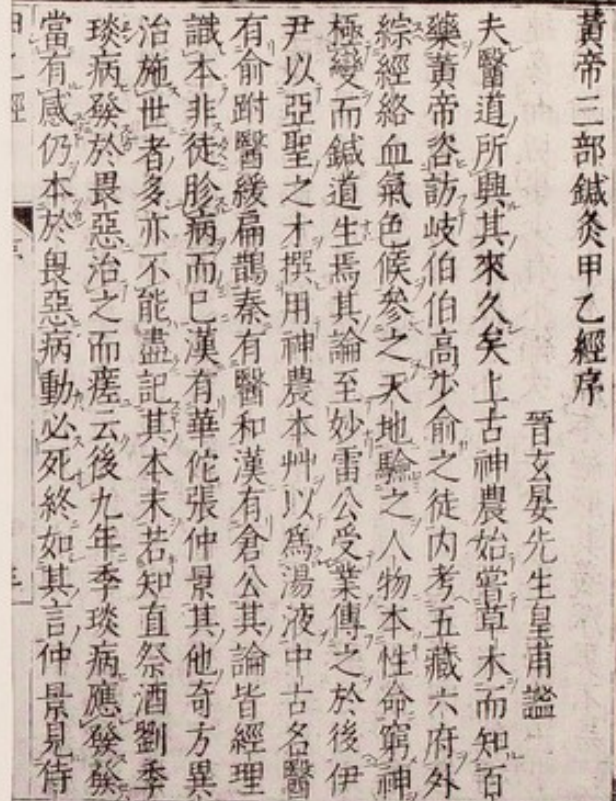 黃帝三部鍼灸甲乙經序
晉玄晏先生皇甫謐
夫醫道所興其來久矣上古神農始嘗草木而知百
藥黃帝咨訪岐伯伯高少俞之徒内考五藏六府外
綜經絡血氣色候參之天地驗之人物本性命窮神
極變而鍼道生焉其論至妙雷公受業傳之於後伊
尹以亞聖之才撰用神農本艸以爲湯液中古名醫
有俞跗醫緩扁鵲秦有醫和漢有倉公其論皆經理
識本非徒胗病而已漢有華佗張仲景其他奇方異
治施世者多亦不能盡記其本末若知直祭酒劉季
琰病發於畏惡治之而瘥云後九年季琰病應發發
當有感仍本於畏惡病動必死終如其言仲景見侍
甲乙經